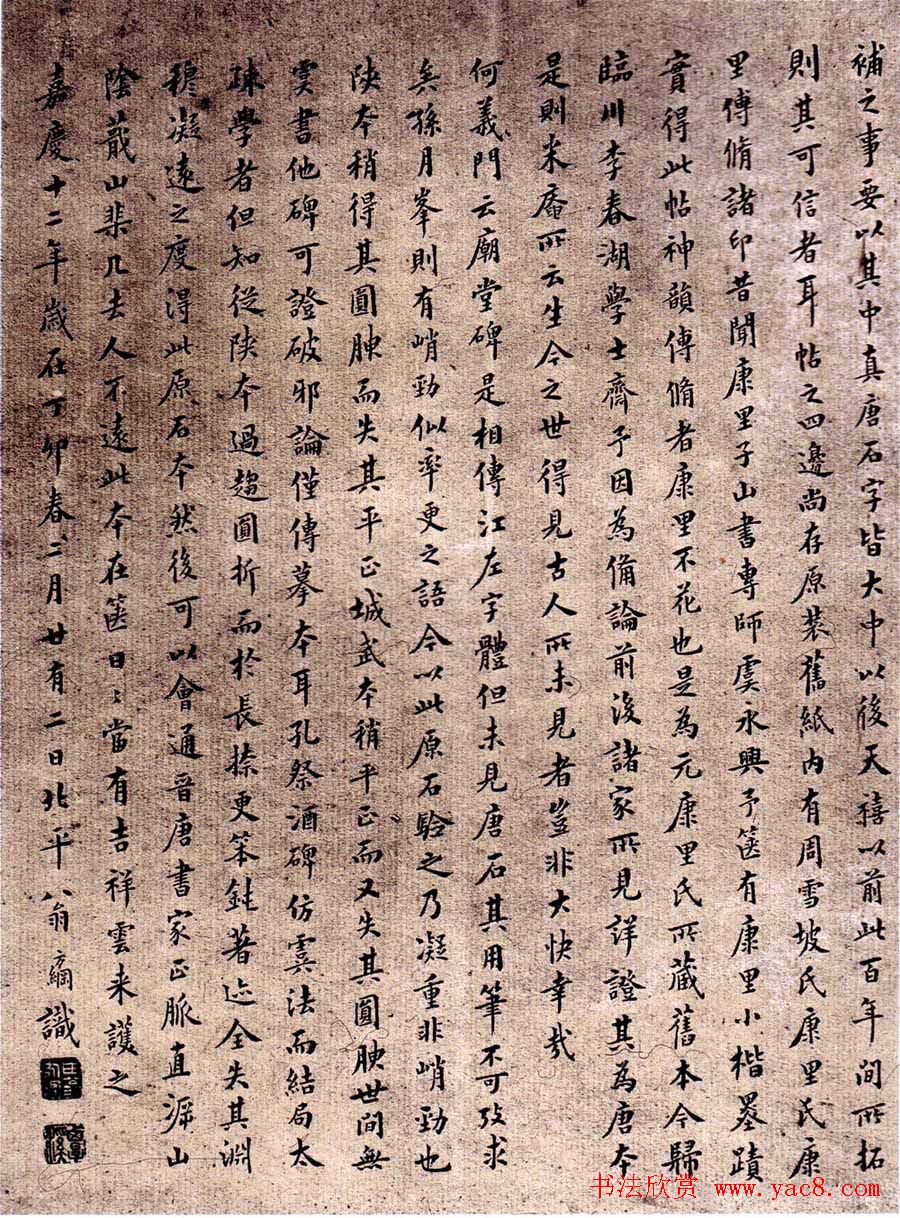 補之事要以其中真唐石字皆大中以後天禧以前此百年間所拓
則其可信者耳帖之四邊尚存原裝舊紙内有周雪坡氏康里氏康
里傅脩諸印昔聞康里子山書專師虞永興予篋有康里小楷墨蹟
實得此帖神韻傅脩者康里不花也是為元康里氏所藏舊本今歸
臨川李春湖學士齋予因為備論前後諸家所見詳證其為唐本
是則米庵所云生今之世得見古人所未見者豈非大快幸哉
何義門云廟堂碑是相傳江左字體但未見唐石其用筆不可攷求
矣孫月峯則有峭勁似率更之語今以此原石驗之乃凝重非峭勁也
陝本稍得其圓腴而失其平正城武本稍平正而又失其圓腴世間無
虞書他碑可證破邪論僅傳摹本耳孔祭酒碑仿虞法而結局太
疎學者但知從陝本過趨圓折而於長捺更笨鈍著迹全失其淵
穆凝遠之度得此原石本然後可以會通晉唐書家正脈直泝山
陰蕺山棐几去人不遠此本在篋日〻當有吉祥雲来護之
嘉慶十二年歲在丁卯春二月廿有二日北平翁方綱識
书法欣赏 www.yac8.com